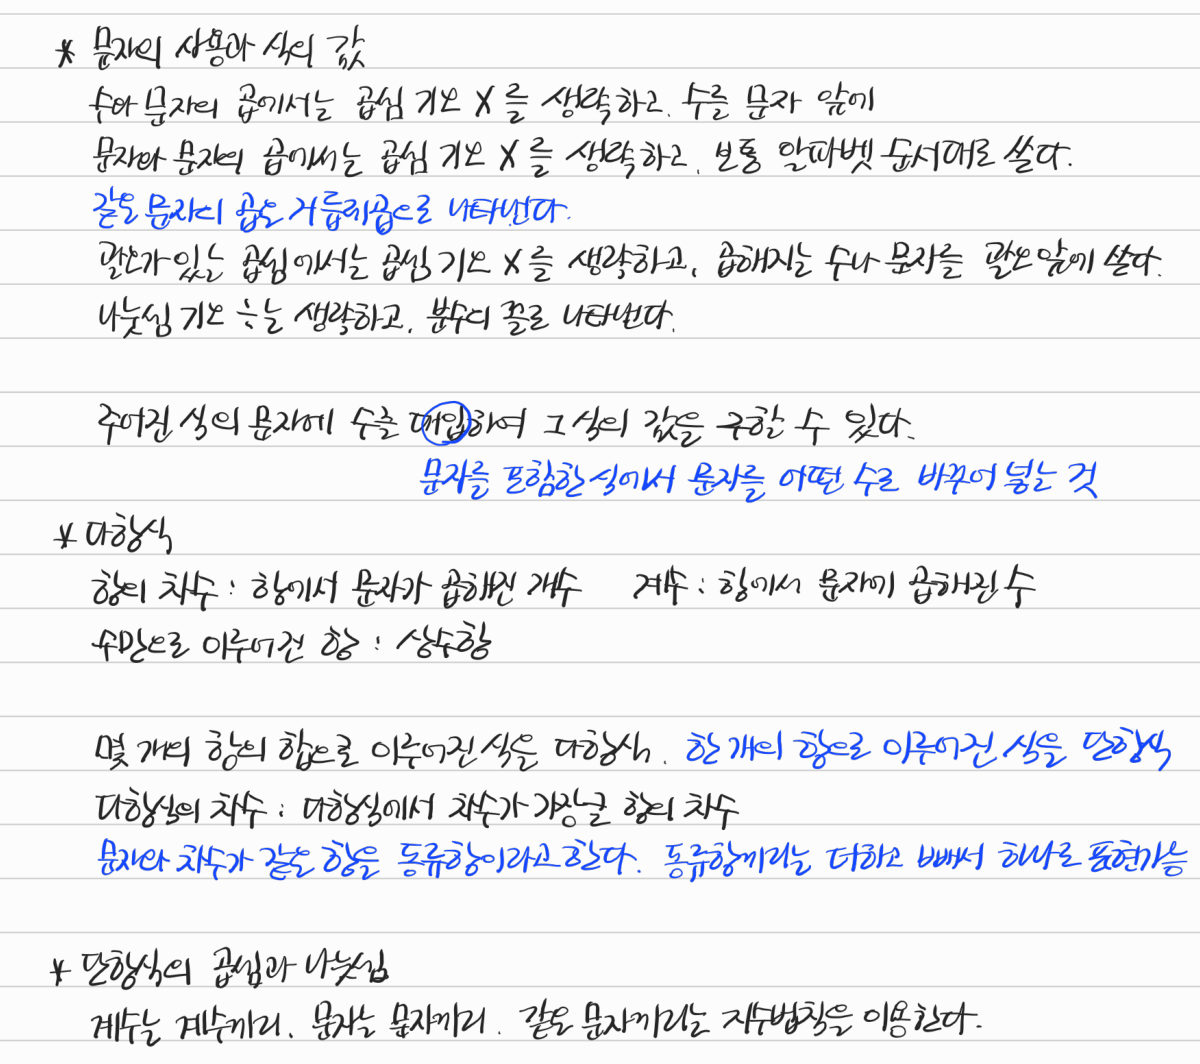 * 문자의 사용과 식의 값
수와 문자의 곱에서는 곱셈 기호 X 를 생략하고, 수를 문자 앞에
문자와 문자의 곱에서는 곱셈 기호 X 를 생략하고, 보통 알파벳 순서대로 쓴다.
같은 문자의 곱은 거듭제곱으로 나타낸다.
괄호가 있는 곱셈에서는 곱셈 기호 X 를 생략하고, 곱해지는 수나 문자를 괄호 앞에 쓴다.
나눗셈 기호 ÷는 생략하고, 분수의 꼴로 나타낸다.
주어진 식의 문자에 수를 대입하여 그 식의 값을 구할 수 있다.
문자를 포함한 식에서 문자를 어떤 수로 바꾸어 넣는 것
* 다항식
항의 차수 : 항에서 문자가 곱해진 개수 계수 : 항에서 문자에 곱해진 수
수만으로 이루어진 항 : 상수항
몇 개의 항의 합으로 이루어진 식을 다항식. 한 개의 항으로 이루어진 식을 단항식
다항식의 차수 : 다항식에서 차수가 가장 큰 항의 차수
문자와 차수가 같은 항을 동류항이라고 한다. 동류항끼리는 더하고 빼서 하나로 표현가능
* 단항식의 곱셈과 나눗셈
계수는 계수끼리, 문자는 문자끼리. 같은 문자끼리는 지수법칙을 이용한다.